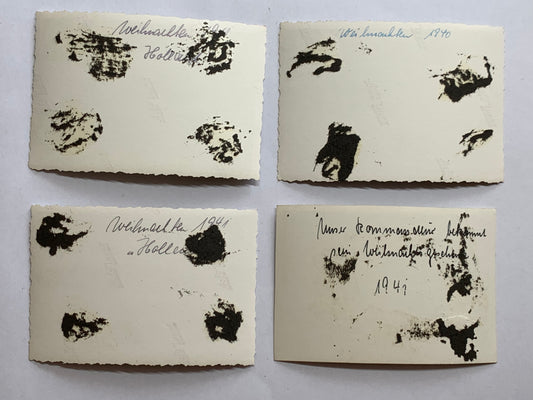 Weihnachten
Weihnachten 1940
Weihnachten 1941
Unser Kommandeur bekommt
sein Weihnachtsgeschenk
1941